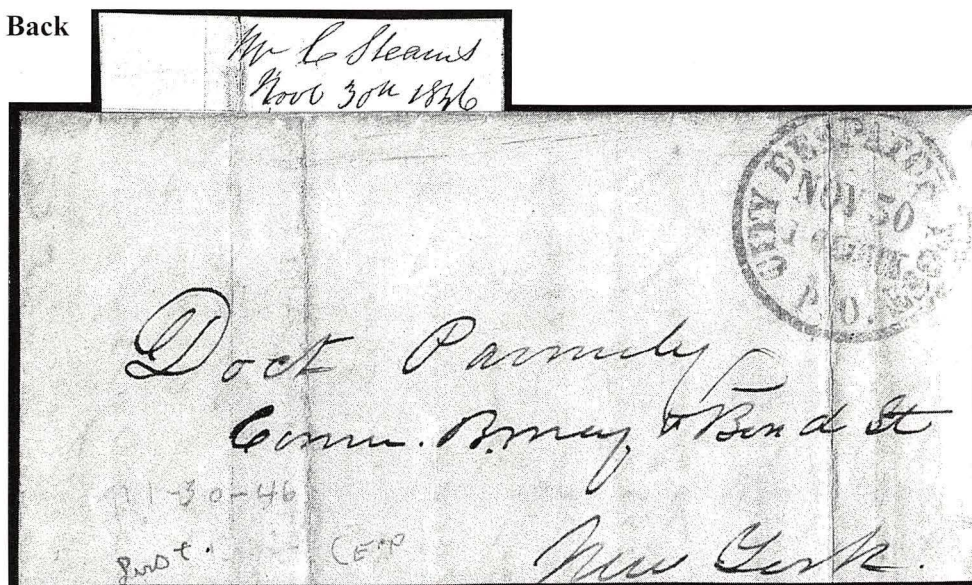 Back
Mr C Stearns
Novb 30th 1846
CITY DESPATCH POST
NOV 30
2 CENTS
P. O.
Doct Parmely
Corner. Brway & Bond St
New York.
11-30-46